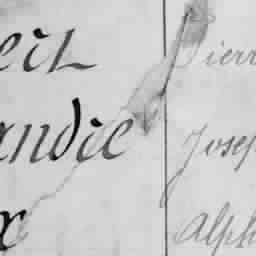 eil Pierr
andie Josep
x Alph